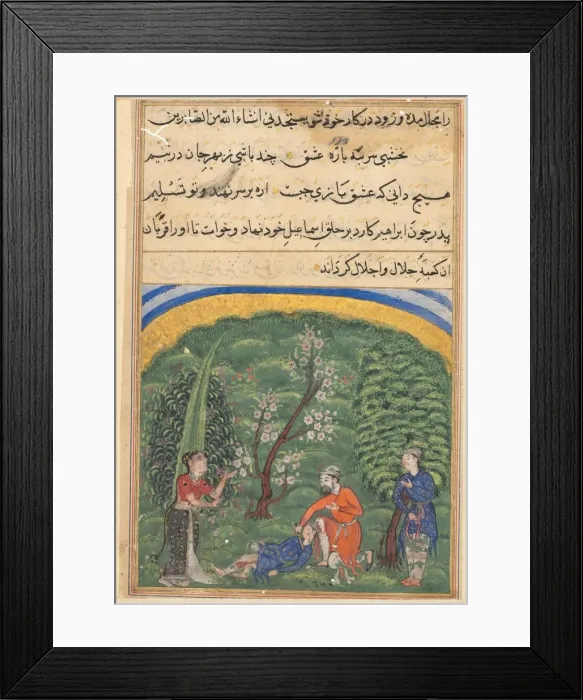 را مجال مده و زود در کار خود شو ستجدنی انشاء الله من الصابرین
نخشبی سر بنه بازه عشق چند باشی ز مهر جان در بیم
هیچ دانی که عشق بازی چیست اره بر سر نهند و تو تسلیم
پدر چون ابراهیم کارد بر حلق اسماعیل خود نهاد و خواست تا او را قربان
آن کعبهٔ جلال و اجلال گرداند